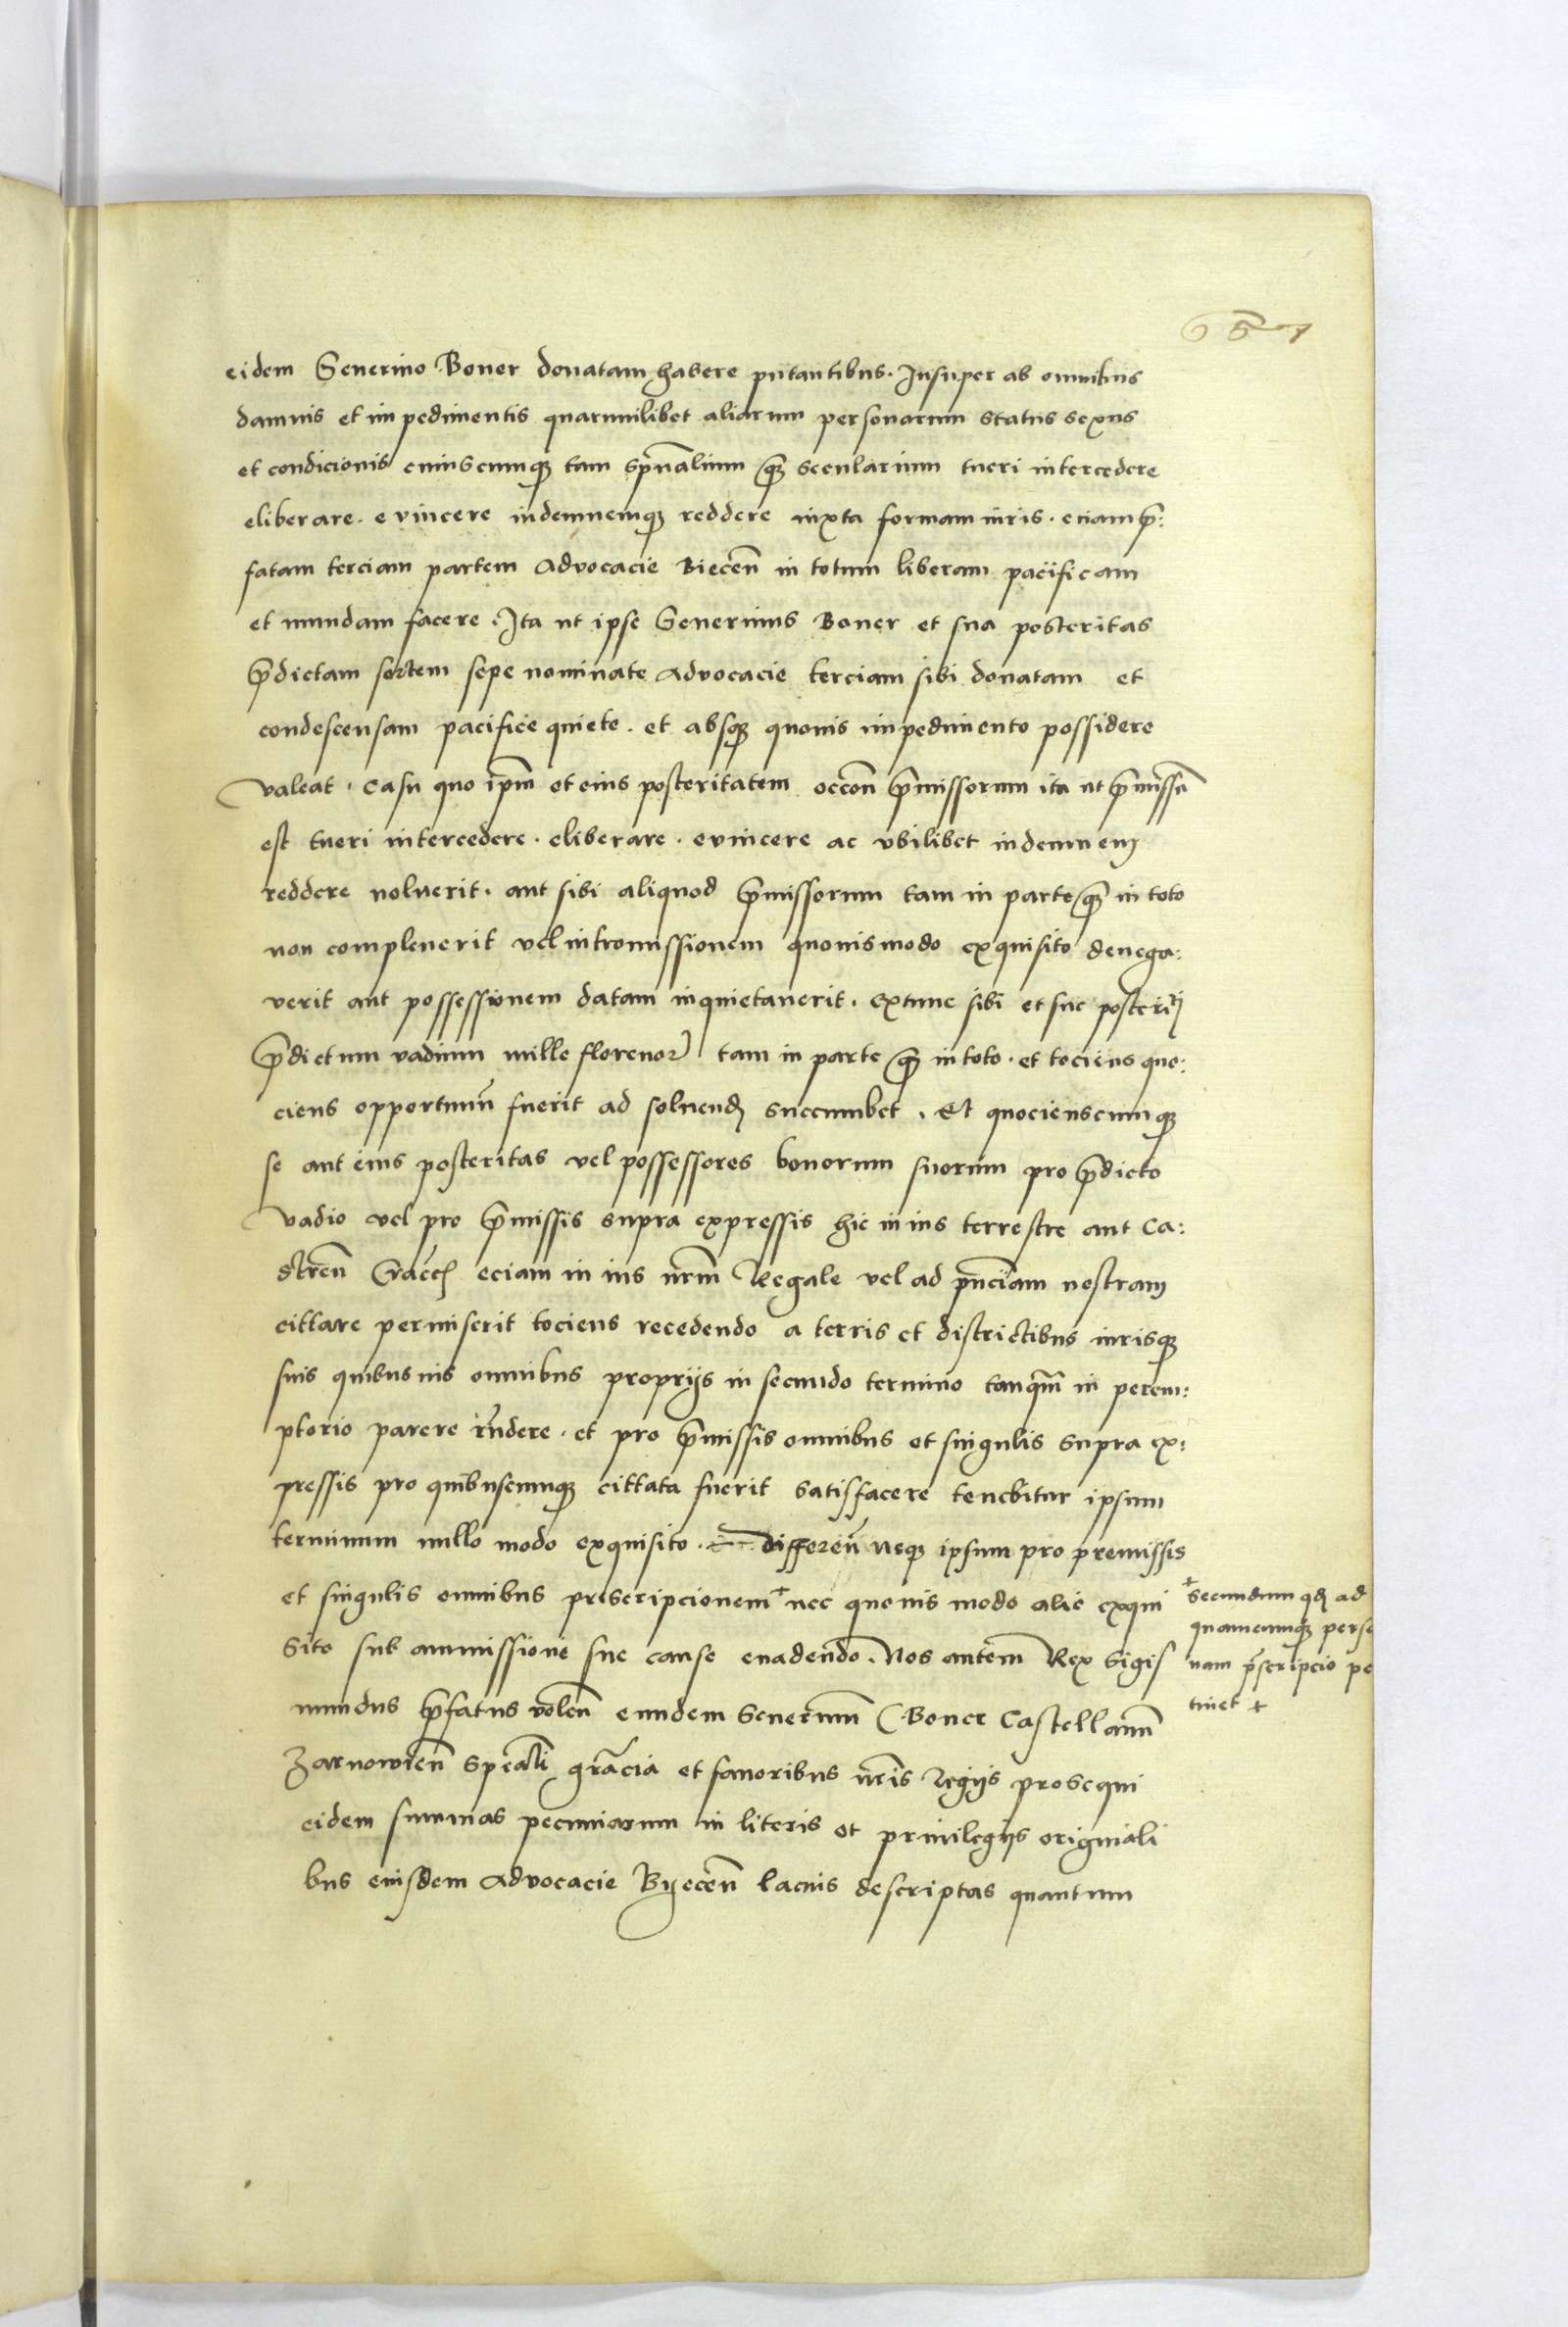 eidem Severino Boner donatam habere putantibus. Insuper ab omnibus
damnis et impedimentis quarumlibet aliarum personarum status sexus
et condicionis cuiuscumq₃ tam spūalium q̄ȝ secularium tueri intercedere
eliberare. evincere indemnemq₃ reddere iuxta formam iuris. eciam p̄:
fatam terciam partem Advocacie Biecen̄ in totum liberam pacificam
et mundam facere. Ita ut ipse Severinus Boner et sua posteritas
p̄dictam sortem sepe nominate Advocacie terciam sibi donatam et
condescensam pacifice quiete. et absq₃ quovis impedimento possidere
valeat. Casu quo ip̄m et eius posteritatem occōn p̄missorum ita ut p̄missū
est tueri intercedere. eliberare. evincere ac ubilibet indemnem
reddere noluerit. aut sibi aliquod p̄missorum tam in parte q̄ȝ in toto
non compleverit vel intromissionem quovismodo exquisito denega:
verit aut possessionem datam inquietaverit. extunc sibi et sue posterit̄i
p̄dictum vadium mille florenoꝝ tam in parte q̄ȝ in toto. et tociens quo:
ciens opportunū fuerit ad solvend succumbet. Et quocienscumq₃
se aut eius posteritas vel possessores bonorum suorum pro p̄dicto
vadio vel pro p̄missis supra expressis hic in ius terrestre aut Ca:
stren̄ Cracc̄ eciam in ius nr̄m Regale vel ad pn̄ciam nostram
cittare permiserit tociens recedendo a terris et districtibus iurisq₃
suis quibusvis omnibus proprijs in secundo termino tanq̄m in perem:
ptorio parere rn̄dere. et pro p̄missis omnibus et singulis supra ex:
pressis pro quibuscumq₃ cittata fuerit satisfacere tenebitur ipsum
terminum nullo modo exquisito. differen̄ neq₃ ipsum pro premissis
et singulis omnibus prescripcionem + nec quovis modo alio exqui
sito sub ammissione sue cause evadendo. Nos autem Rex Sigis
mundus p̄fatus volen̄ eundem Severinū Boner Castellanū
Zarnowien̄ sp̄eali gr̄acia et favoribus nr̄is Regijs prosequi
eidem summas pecuniarum in literis et privilegijs originali
bus eiusdem Advocacie Byecen̄ lacius descriptas quantum
+ secundum qd ad
quamcumq₃ perso
nam p̄scripcio pe
tinet +